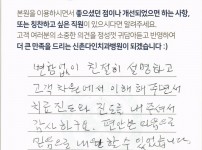 본원을 이용하시면서 좋으셨던 점이나 개선되었으면 하는 사항,
또는 칭찬하고 싶은 직원이 있으시다면 알려주세요.
고객 여러분의 소중한 의견을 정성껏 귀담아듣고 반영하여
더 큰 만족을 드리는 신촌다인치과병원이 되겠습니다 :)
변함없이 친절히 설명하고
고객 차원에서 이해해 주면서
치료진도와 진도를 내 주셔서
감사하구요. 편안한 마음으로
믿음으로 내원할 수 있었습니다.